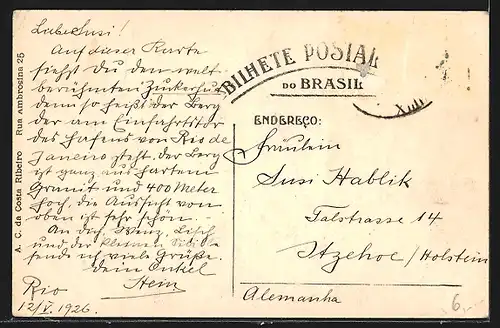 Liebe Susi!
Auf dieser Karte
siehst Du den welt-
berühmten Zuckerhut
denn so heißt der Berg
der am Einfahrtstor
des Hafens von Rio de
Janeiro steht. Der Berg
ist ganz aus hartem
Granit und 400 Meter
hoch, die Aussicht von
oben ist sehr schön. -
An Dich, Wenz, Lisch
und der kleinen
sende ich viele Grüße.
Dein Onkel
Hein
Rio
12/V. 1926.
A. C. da Costa Ribeiro Rua Ambrosina 25
BILHETE POSTAL
DO BRASIL
ENDEREÇO:
Fräulein
Susi Hablik
Talstrasse 14
Itzehoe / Holstein
Alemanha
6,-